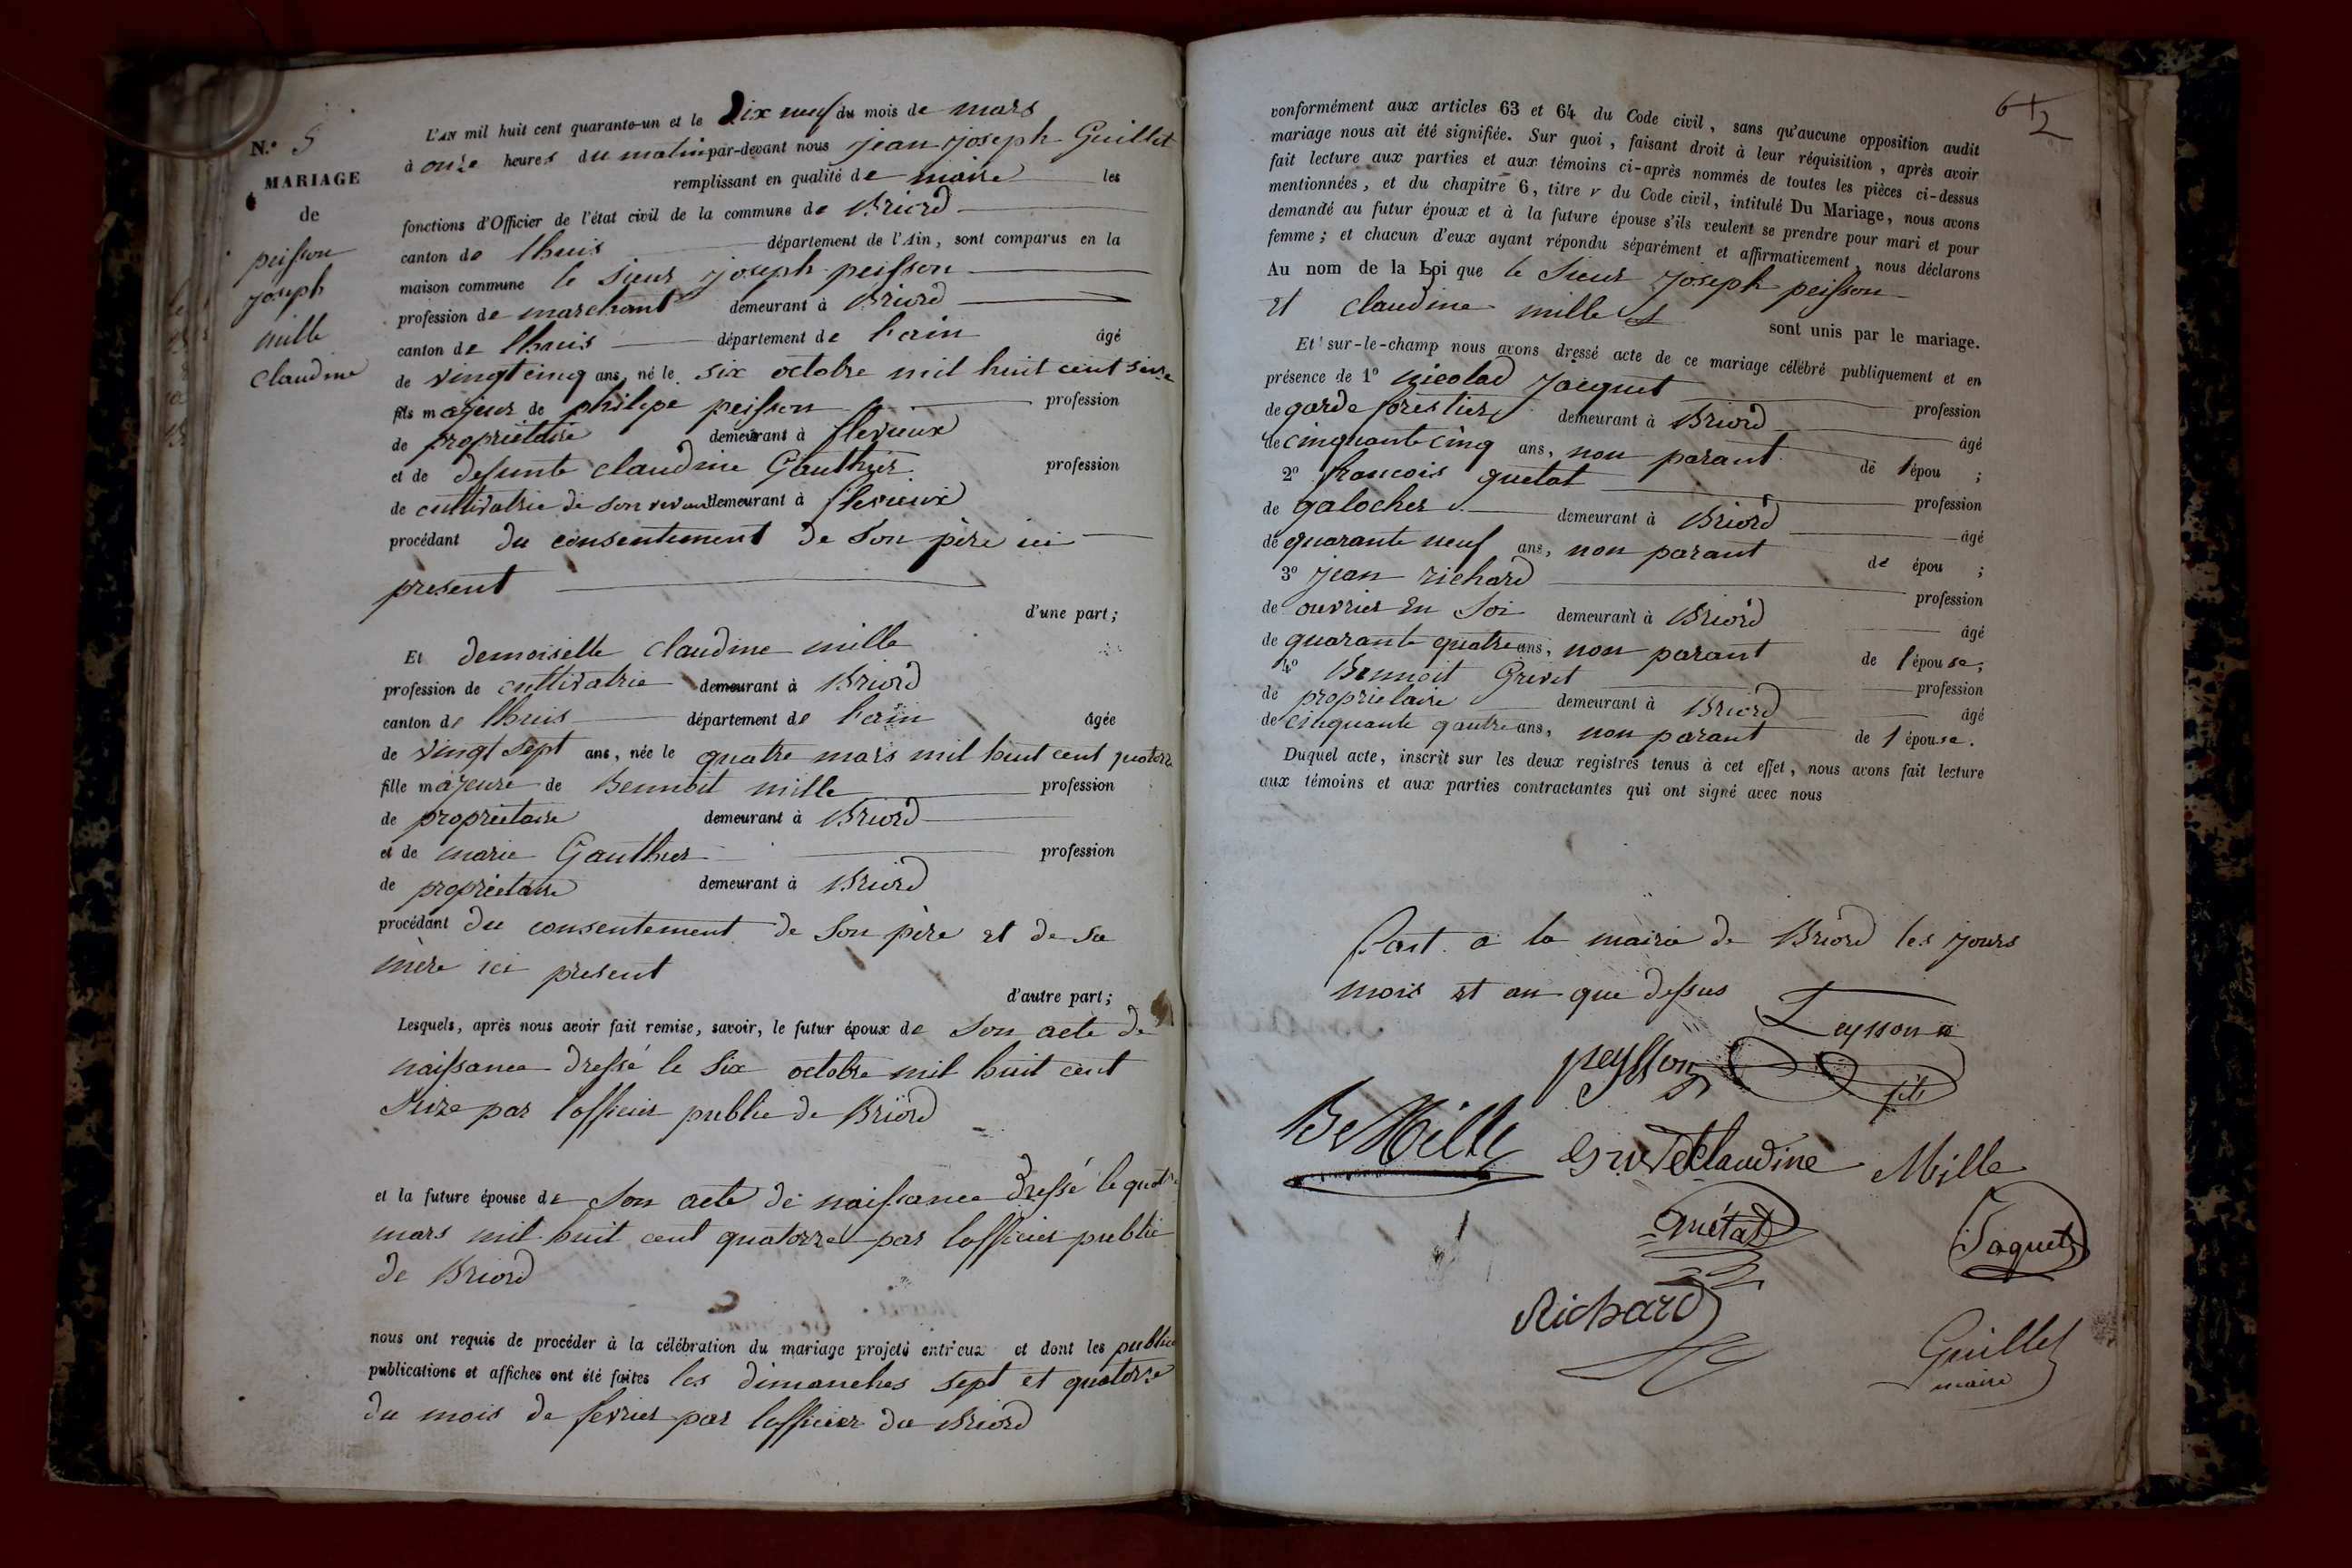 N.° 5
MARIAGE
de
peisson
joseph
mille
claudine
L'AN mil huit cent quarante-un et le Dix neuf du mois de mars
à onze heures du matin par-devant nous jean joseph Guillet
remplissant en qualité de maire les
fonctions d'Officier de l'état civil de la commune de Briord
canton de lhuis département de l'Ain, sont comparus en la
maison commune le sieur joseph peisson
profession de marchant demeurant à Briord
canton de lhuis département de l'ain âgé
de vingt cinq ans, né le six octobre mil huit cent seize
fils majeur de philipe peisson profession
de proprietaire demeurant à flevieux
et de defunte claudine Gauthier profession
de cultivatrie de son vivant demeurant à flevieux
procédant du consentement de son père ici
present
d'une part;
Et demoiselle claudine mille
profession de cultivatrie demeurant à Briord
canton de lhuis département de l'ain âgée
de vingt sept ans, née le quatre mars mil huit cent quatorze
fille majeure de Bennoit mille profession
de proprietaire demeurant à Briord
et de marie Gauthier profession
de proprietaire demeurant à Briord
procédant du consentement de son père et de sa
mère ici present
d'autre part;
Lesquels, après nous avoir fait remise, savoir, le futur époux de son acte de
naissance dressé le six octobre mil huit cent
seize par l'officier public de Briord
et la future épouse de son acte de naissance dressé le quatre
mars mil huit cent quatorze par l'officier public
de Briord
nous ont requis de procéder à la célébration du mariage projeté entr'eux et dont les public
publications et affiches ont été faites les dimanches sept et quatorze
du mois de fevrier par l'officier de Briord
6+2
conformément aux articles 63 et 64 du Code civil, sans qu'aucune opposition audit
mariage nous ait été signifiée. Sur quoi, faisant droit à leur réquisition, après avoir
fait lecture aux parties et aux témoins ci-après nommés de toutes les pièces ci-dessus
mentionnées, et du chapitre 6, titre v du Code civil, intitulé Du Mariage, nous avons
demandé au futur époux et à la future épouse s'ils veulent se prendre pour mari et pour
femme; et chacun d'eux ayant répondu séparément et affirmativement, nous déclarons
Au nom de la Loi que le sieur joseph peisson
et claudine mille sont unis par le mariage.
Et sur-le-champ nous avons dressé acte de ce mariage célébré publiquement et en
présence de 1° nicolas jacquet profession
de garde forestier demeurant à Briord âgé
de cinquante cinq ans, non parant de l'épou ;
2° francois quetat profession
de galocher demeurant à Briord âgé
de quarante neuf ans, non parant de épou ;
3° jean richard profession
de ouvrier en soi demeurant à Briord âgé
de quarante quatre ans, non parant de l'épouse;
4° Bennoit Grivet profession
de proprietaire demeurant à Briord âgé
de cinquante qautre ans, non parant de l'épouse.
Duquel acte, inscrit sur les deux registres tenus à cet effet, nous avons fait lecture
aux témoins et aux parties contractantes qui ont signé avec nous
fait a la mairie de Briord les jours
mois et an que dessus
Peysson
peysson fils
Be Mille Claudine Mille
Quétat Jaquet
Richard
Guillet
maire